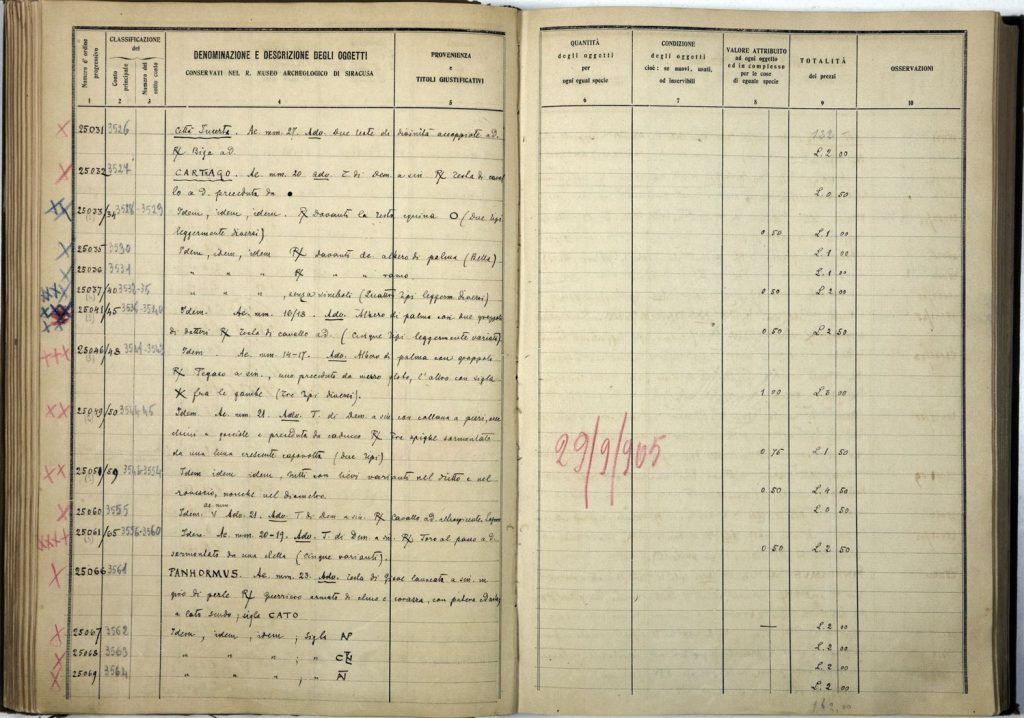 Numero d'ordine progressivo
CLASSIFICAZIONE del
Conto principale
Numero del sotto conto
DENOMINAZIONE E DESCRIZIONE DEGLI OGGETTI
CONSERVATI NEL R. MUSEO ARCHEOLOGICO DI SIRACUSA
PROVENIENZA
e
TITOLI GIUSTIFICATIVI
1 2 3 4 5
25031 3526 Città Incerta. Ae. mm. 27. Adv. Due teste di divinità accoppiate a D.
R/ Biga a D.
25032 3527 CARTAGO. Ae. mm. 20. Adv. T. di Dem. a sin. R/ Testa di caval
lo a D. preceduta da •
25033/34 3528-3529 Idem, idem, idem. R/ Davanti la testa equina O (Due tipi
leggermente diversi)
25035 3530 Idem, idem, idem R/ davanti de albero di palma (Bella)
25036 3531 " " " R/ " " ramo
25037/40 3532-35 " " " , senza simboli (Quattro tipi leggerm. diversi)
25041/45 3536-3540 Idem. Ae. mm. 16/18. Adv. Albero di palma con due grappoli
di datteri R/ Testa di cavallo a D. (Cinque tipi leggermente variati)
25046/48 Idem. Ae. mm. 14-17. Adv. Albero di palma con grappoli
R/ Pegaso a sin., uno preceduto da mezzo globo, l'altro con sigla
fra le gambe (Tre tipi diversi).
25049/50 Idem. Ae. mm. 21. Adv. T. di Dem. a sin. con collana a perni, orec
chini a goccie e preceduta da caduceo R/ Tre spighe sormontate
da una luna crescente capovolta (Due tipi)
25051/59 3546-3554 Idem idem, idem, tutti con lievi varianti nel diritto e nel
rovescio, nonchè nel diametro.
25060 3555 Idem. Ae. mm. 21. Adv. T. di Dem. a sin. R/ Cavallo a D.
25061/65 3556-3560 Idem. Ae. mm. 20-19. Adv. T. di Dem. a sin. R/ Toro al passo a D.
sormontato da una stella (cinque varianti).
25066 3561 PANHORMUS. Ae. mm. 23. Adv. Testa di Giove laureata a sin. in
giro di perle R/ Guerriero armato di elmo e corazza, con patera
a lato scudo; sigla CATO
25067 3562 Idem, idem, idem; sigla
25068 3563 " " " ; "
25069 3564 " " " ; "
QUANTITÀ
degli oggetti
per
ogni egual specie
CONDIZIONE
degli oggetti
cioè: se nuovi, usati,
od inservibili
VALORE ATTRIBUITO
ad ogni oggetto
ed in complesso
per le cose
di eguale specie
TOTALITÀ
dei prezzi
OSSERVAZIONI
6 7 8 9 10
132 -
L. 2 00
L. 0 50
0 50 L. 1 00
L. 1 00
L. 1 00
0 50 L. 2 00
0 50 L. 2 50
1 00 L. 3 00
29/9/905
0 75 L. 1 50
0 50 L. 4 50
L. 0 50
0 50 L. 2 50
— L. 2 00
L. 2 00
L. 2 00
L. 2 00
162,00